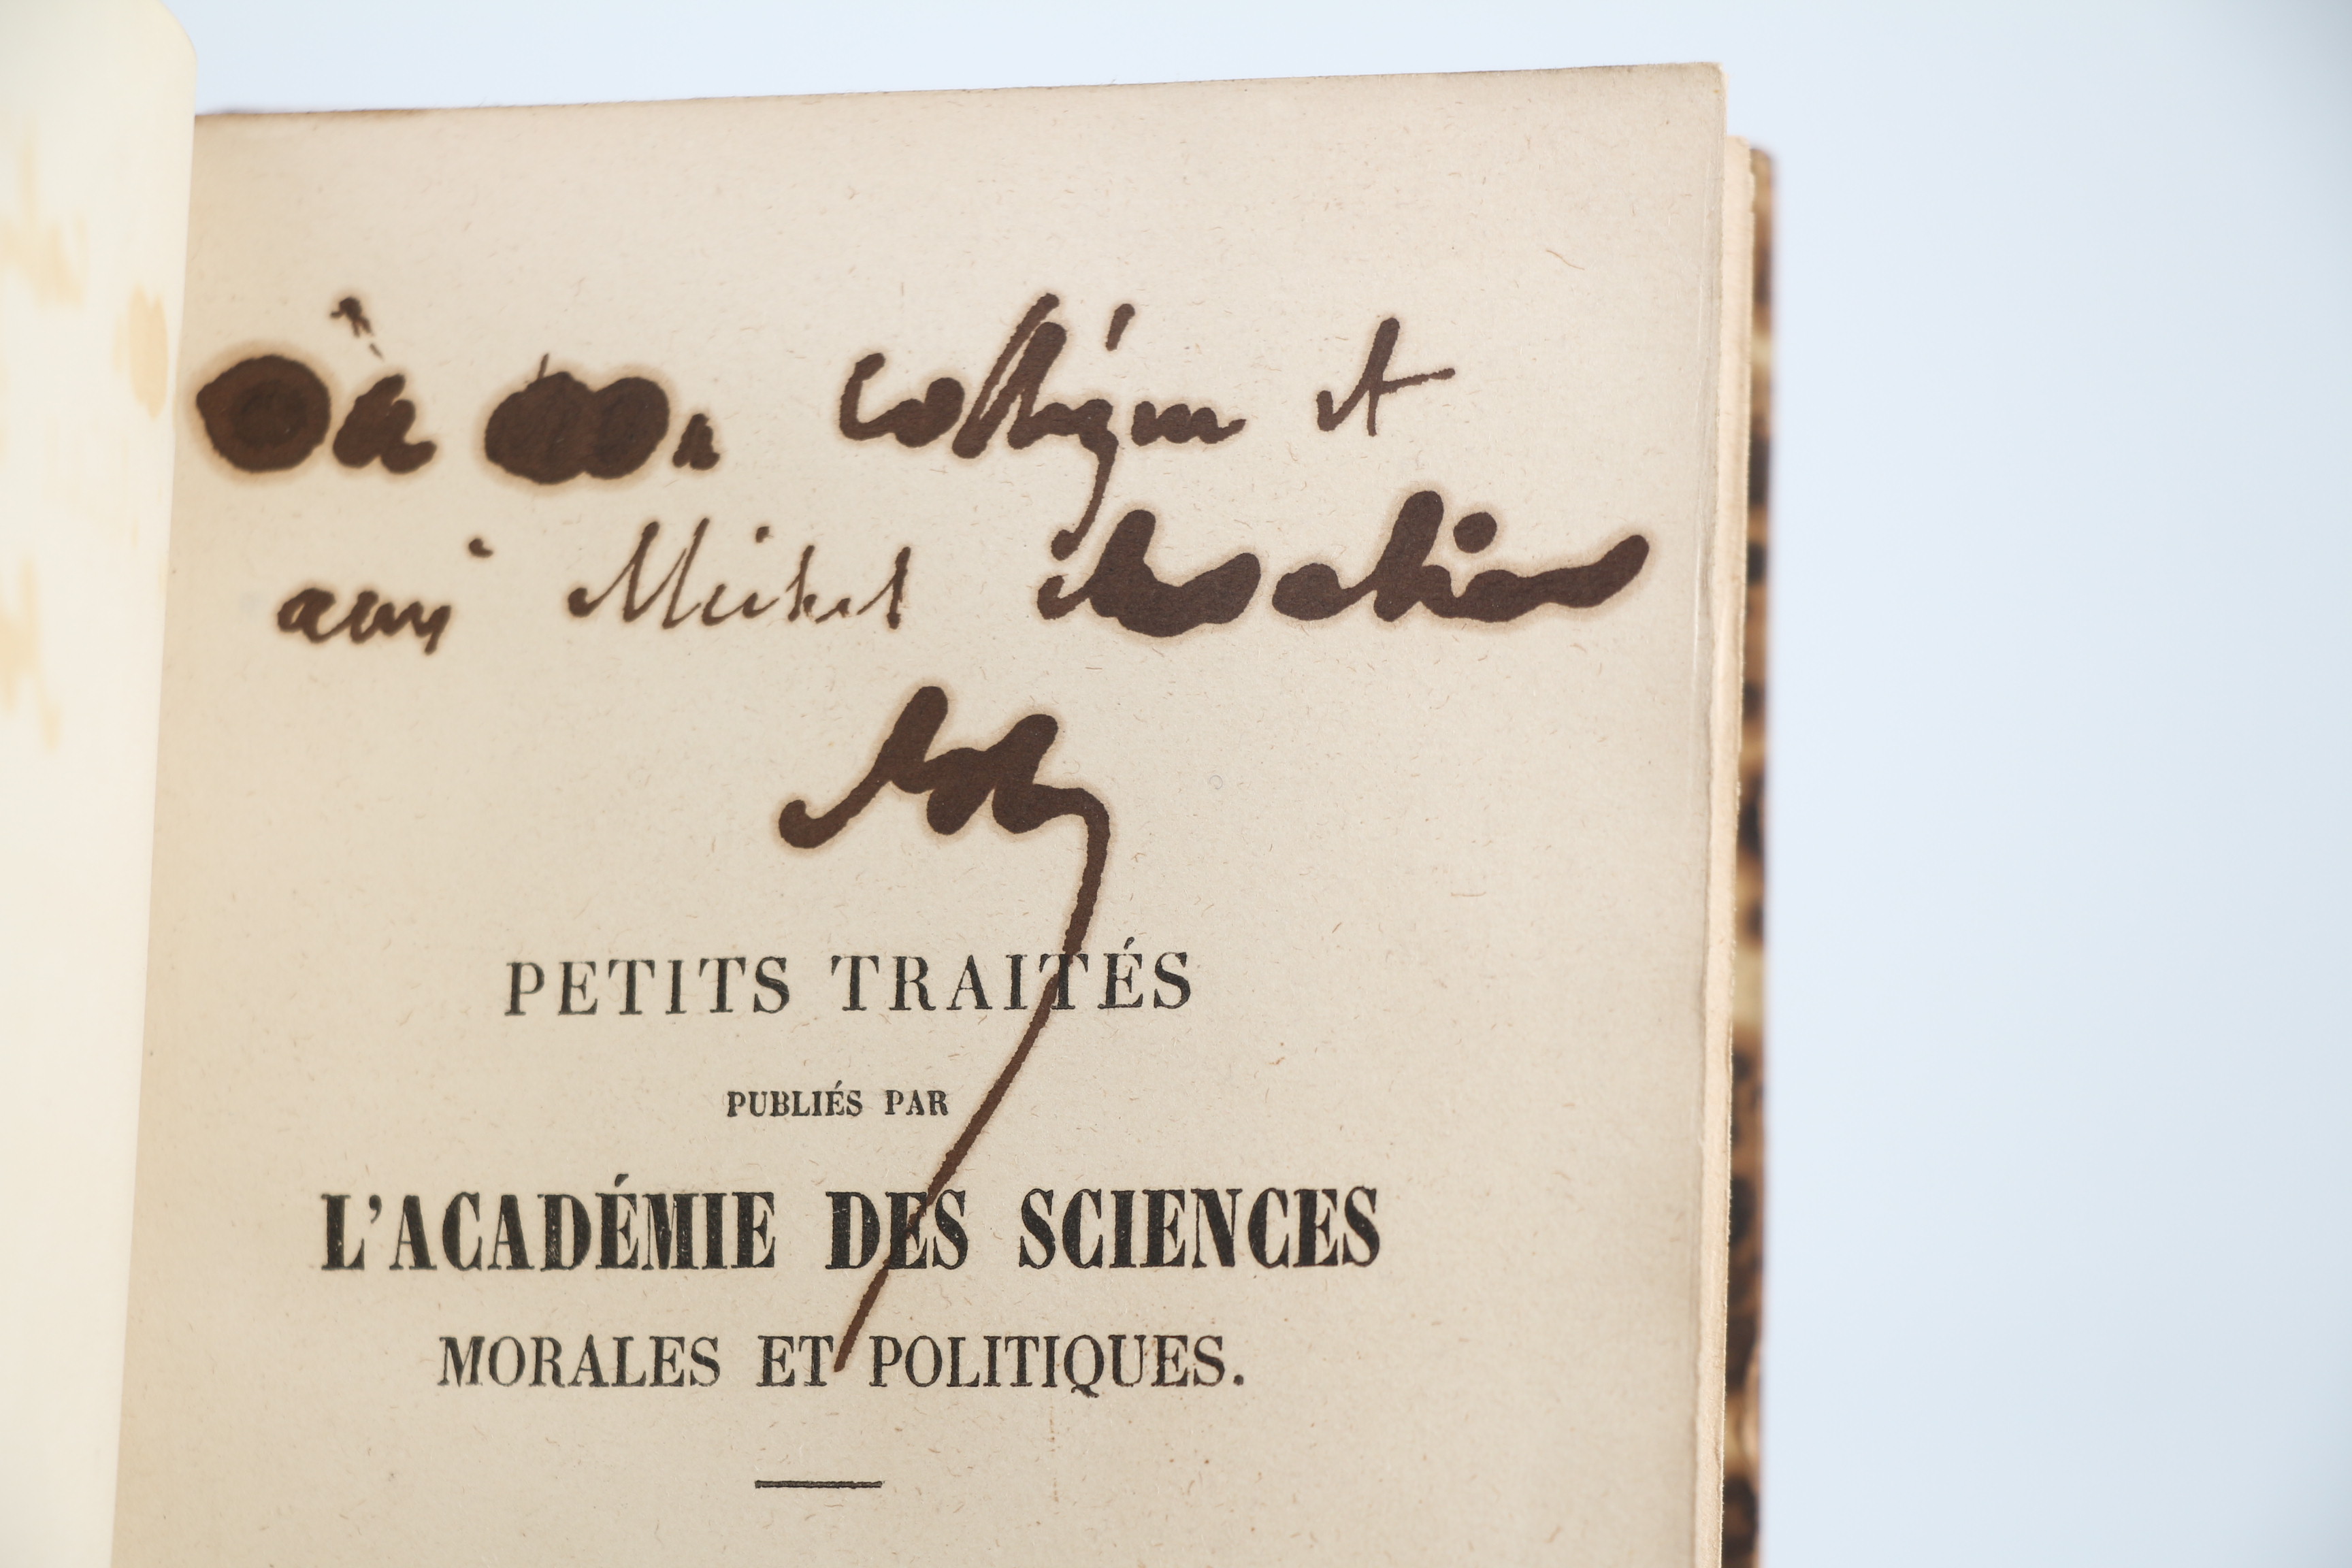 à mon collègue et
ami Michel Chevalier
PETITS TRAITÉS
PUBLIÉS PAR
L'ACADÉMIE DES SCIENCES
MORALES ET POLITIQUES.